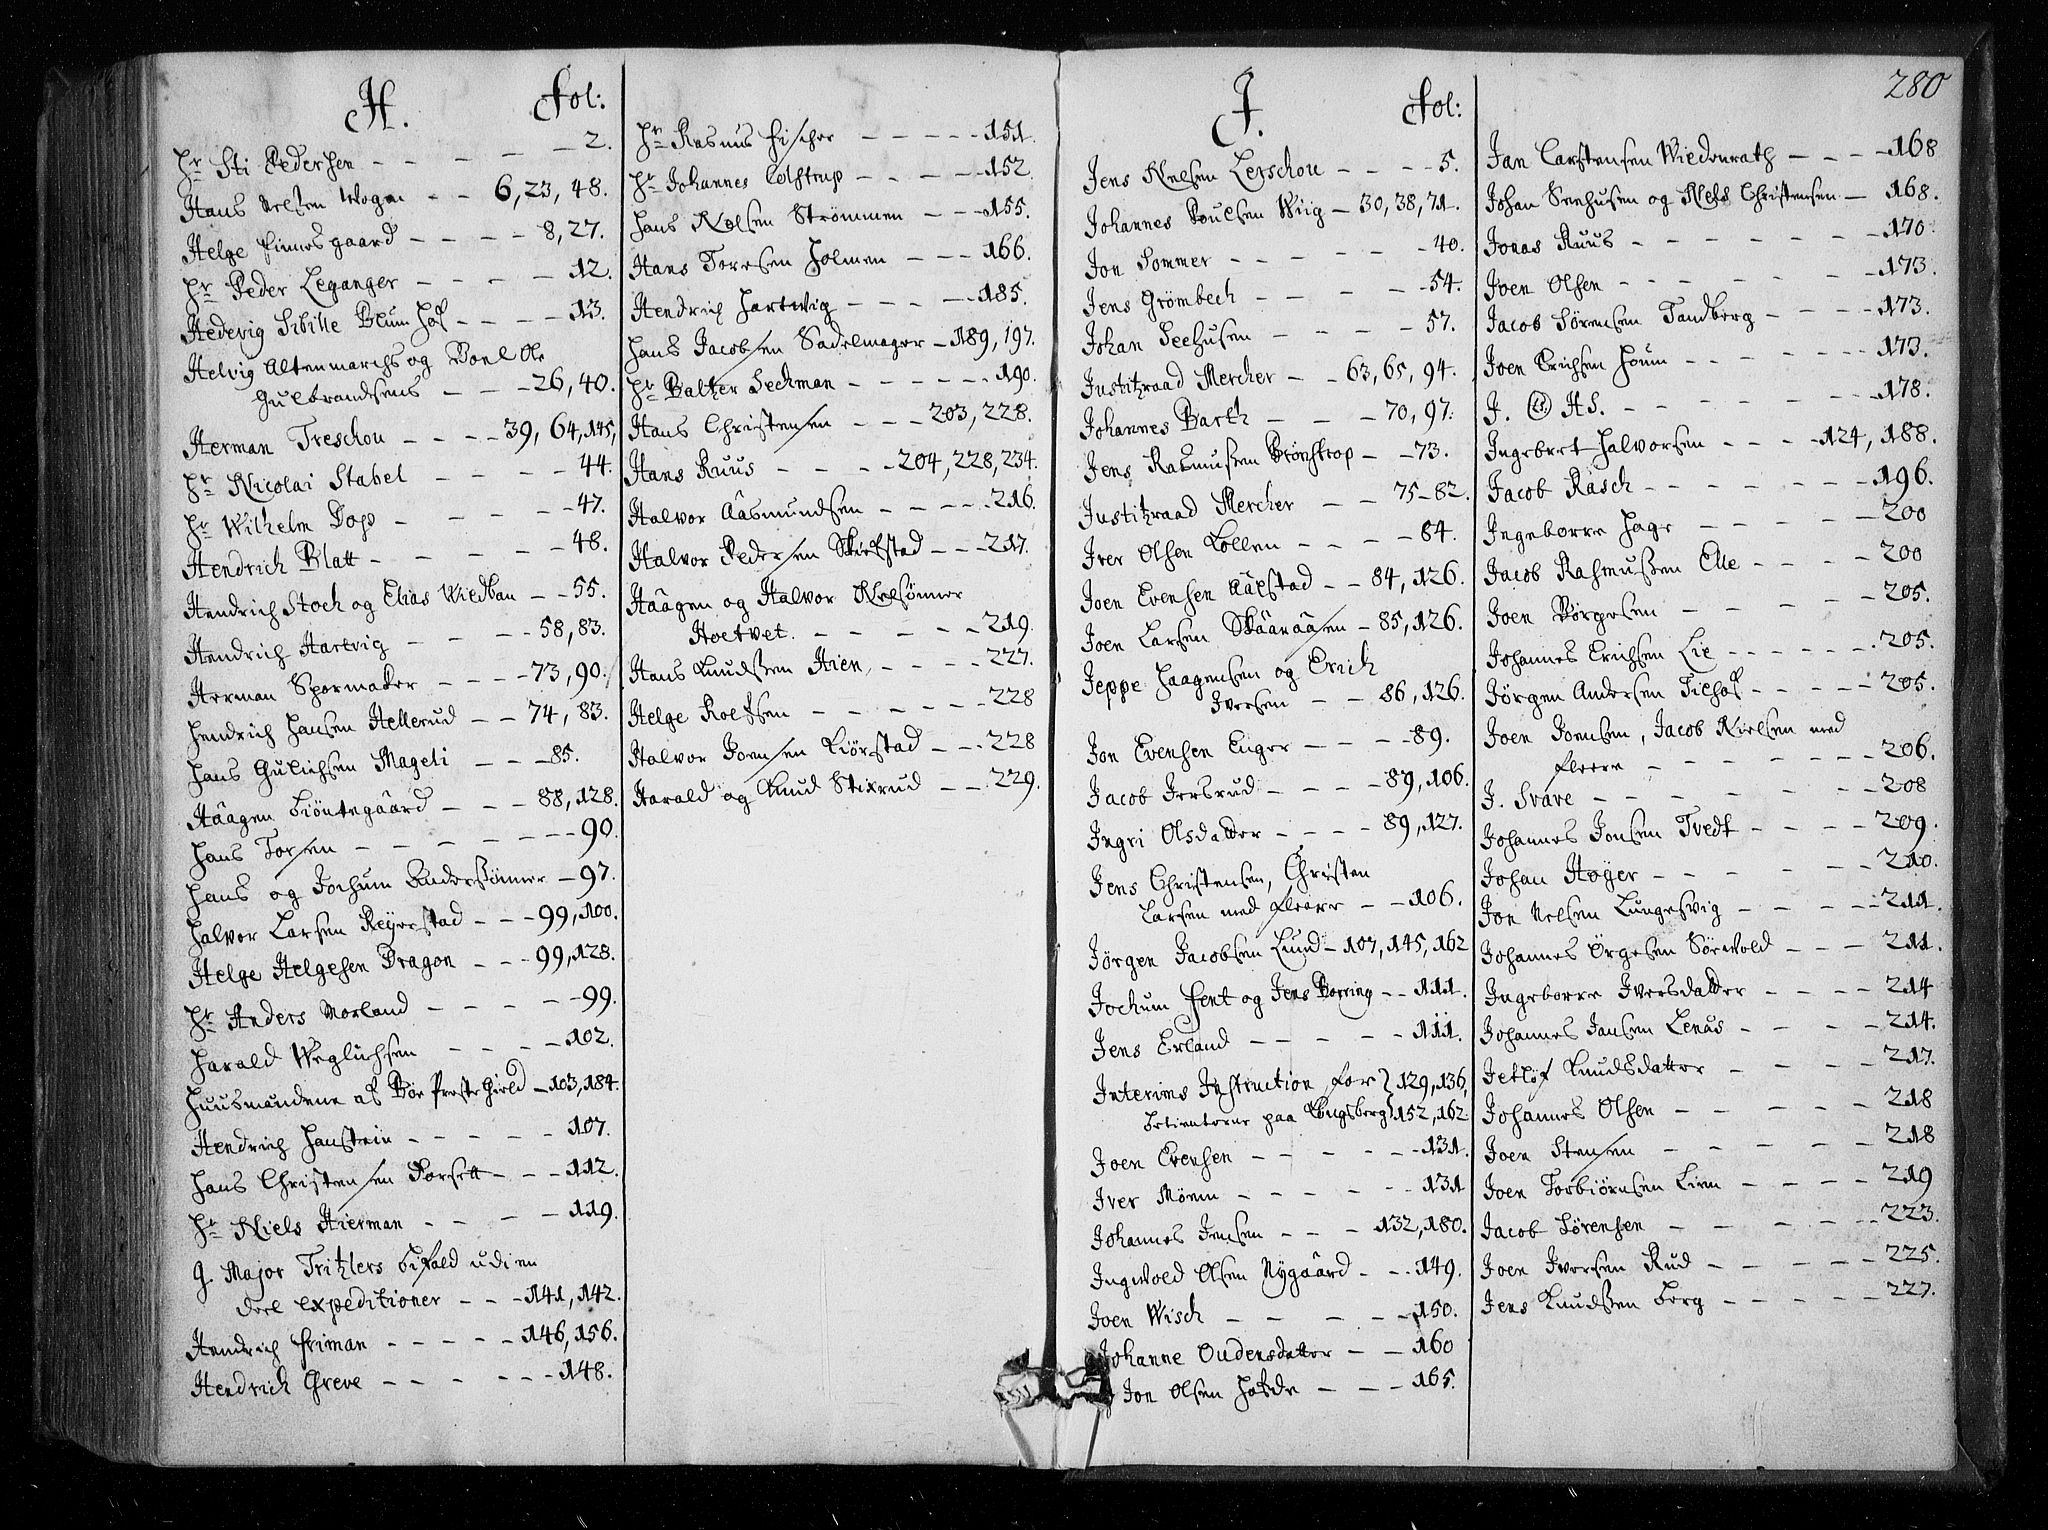 H. Fol:
Hr Sti Pedersen - - - - - 2.
Hans Nelsen Wogn - - 6, 23, 48.
Helge Finnesgaard - - - - 8, 27.
Hr Peder Leganger - - - - 12.
Hedevig Sibille Blum Hof - - - - 13.
Helvig Altenmarchs og Boel Ole
Gulbrandsens - - - 26, 40.
Herman Treschou - - - - 39, 64, 145,
Hr Nicolai Stabel - - - - 44.
Hr Wilhelm Pops - - - - 47.
Hendrich Blatt - - - - - 48.
Hendrich Stoch og Elias Wiedban - - 55.
Hendrich Hartvig - - - - 58, 83.
Herman Spormaker - - - - 73, 90.
Hendrich Hansen Hellerud - - 74, 83.
Hans Gulichsen Mageli - - - 85.
Håågen Biöntegåård - - - 88, 128.
Hans Torsen - - - - - - 90.
Hans og Jochum Anderssönner - 97.
Halvor Larsen Reyerstad - - - 99, 100.
Helge Helgesen Dragon - - - 99, 128.
Hr Anders Norland - - - - - 99.
Harald Weglichsen - - - - 102.
Huusmændene af Böe Præste Gield - 103, 184.
Hendrich Hanstein - - - - - 107.
Hans Christensen Forsett - - - 112.
Hr Niels Hierman - - - - 119.
H. Major Tritzlers bifald udi en
deel expeditioner - - - 141, 142.
Hendrich Friman - - - - - 146, 156.
Hendrich Greve - - - - - - 148.
Hr Rasmus Fischer - - - - - 151.
Hr Johannes Colstrup - - - - - 152.
Hans Nelsen Strömmen - - - 155.
Hans Toresen Holmen - - - 166.
Hendrich Hartwig - - - - - 185.
Hans Jacobsen Sadelmager - 189, 197.
Hr Baltzer Sechman - - - - - - 190.
Hans Christensen - - - 203, 228.
Hans Ruus - - - - 204, 228, 234.
Halvor Aasmundsen - - - - - 216.
Halvor Pedersen Skiefstad - - - 217.
Håågen og Halvor Nelsönner
Hoetvet. - - - - - - 219.
Hans Knudssen Hien, - - - - 227.
Helge Rolfsen - - - - - - 228
Halvor Joensen Kiörstad - - - 228
Harald og Knud Stixrud - - - 229.
J. Fol:
Jens Nelsen Lerschou - - - - 5.
Johannes Poulsen Wiig - 30, 38, 71.
Jon Sommer - - - - - - 40.
Jens Grömbech - - - - - 54.
Johan Seehusen - - - - - 57.
Justitzraad Mercher - - 63, 65, 94.
Johannes Barth - - - - 70, 97.
Jens Rasmussen Brönstrop - - 73.
Justitzraad Mercher - - 75-82.
Iver Olsen Kollen - - - - 84.
Joen Evensen Aalstad - - 84, 126.
Joen Larsen Skåanååsen - 85, 126.
Jeppe Haagensen og Erich
Iversen - - 86, 126.
Jon Evensen Enger - - - - 89.
Jacob Jersrud - - - - 89, 106.
Ingri Olsdatter - - - - 89, 127.
Jens Christensen, Christen
Larsen med fleere - - 106.
Jörgen Jacobsen Lund - 107, 145, 162
Jochum Fent og Jens Borring - - 111.
Jens Erland - - - - - 111.
Interims Instruction for } 129, 136,
betienterne paa Kongsberg } 152, 162.
Joen Evensen - - - - - - 131.
Iver Möenn - - - - - - 131
Johannes Jensen - - - - 132, 180.
Ingwold Olsen Nygåård - - - 149.
Joen Wisch - - - - - - 150.
Johanne Oudensdatter - - - 160
Jon Olsen Hokde - - - - 165.
280
Jan Carstensen Wiedenrath - - - - 168
Johan Seehusen og Niels Christensen - 168.
Jonas Ruus - - - - - - - 170.
Joen Olsen - - - - - - 173.
Jacob Sörensen Tandberg - - - - 173.
Joen Erichsen Houm - - - - - - 173.
J. (LS.) HS. - - - - - - - 178.
Ingebret Halvorsen - - - - 124, 188.
Jacob Rasch - - - - - - - 196.
Ingeborre Hage - - - - - 200
Jacob Rasmussen Elle - - - - 200
Joen Börgesen - - - - - 205.
Johannes Erichsen Lie - - - - - - 205.
Jörgen Andersen Tilhof - - - - - 205.
Joen Joensen, Jacob Nielsen med
fleere - - - - - - - 206.
J. Svare - - - - - - - - 208
Johannes Jonsen Tvedt - - - - 209.
Johan Höyer - - - - - - 210.
Jon Nelsen Lungesvig - - - - - 211.
Johannes Örgesen Sörwold - - - 211.
Ingeborre Iversdatter - - - - 214
Johannes Jansen Lenås - - - - 214.
Jetlöf Knudsdatter - - - - - 217.
Johannes Olsen - - - - - - 218
Joen Stensen - - - - - - 218
Joen Torbiörnsen Lien - - - - 219
Jacob Sörensen - - - - - - 223.
Joen Iversen Rud - - - - - 225.
Jens Knudssen Berg - - - - - 227.